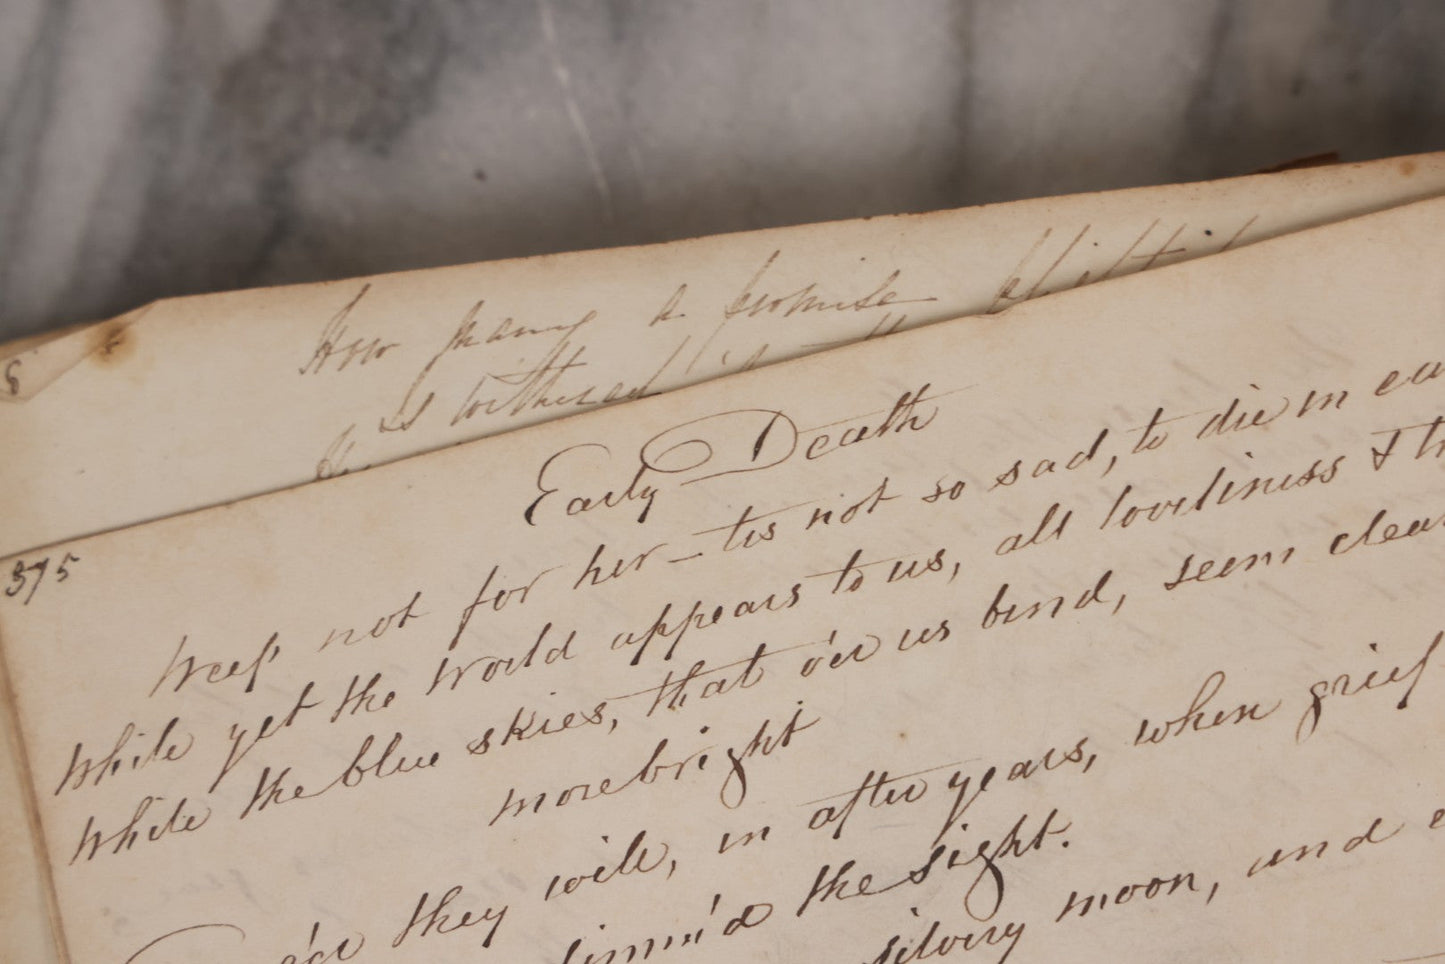 8
How many a promise blights
Is withered
375
Early Death
Weep not for her — tis not so sad, to die in ea
While yet the world appears to us, all loveliness & th
While the blue skies, that o'er us bend, seem clear
more bright
they will, in after years, when grief
dimm'd the sight.
silvery moon, and